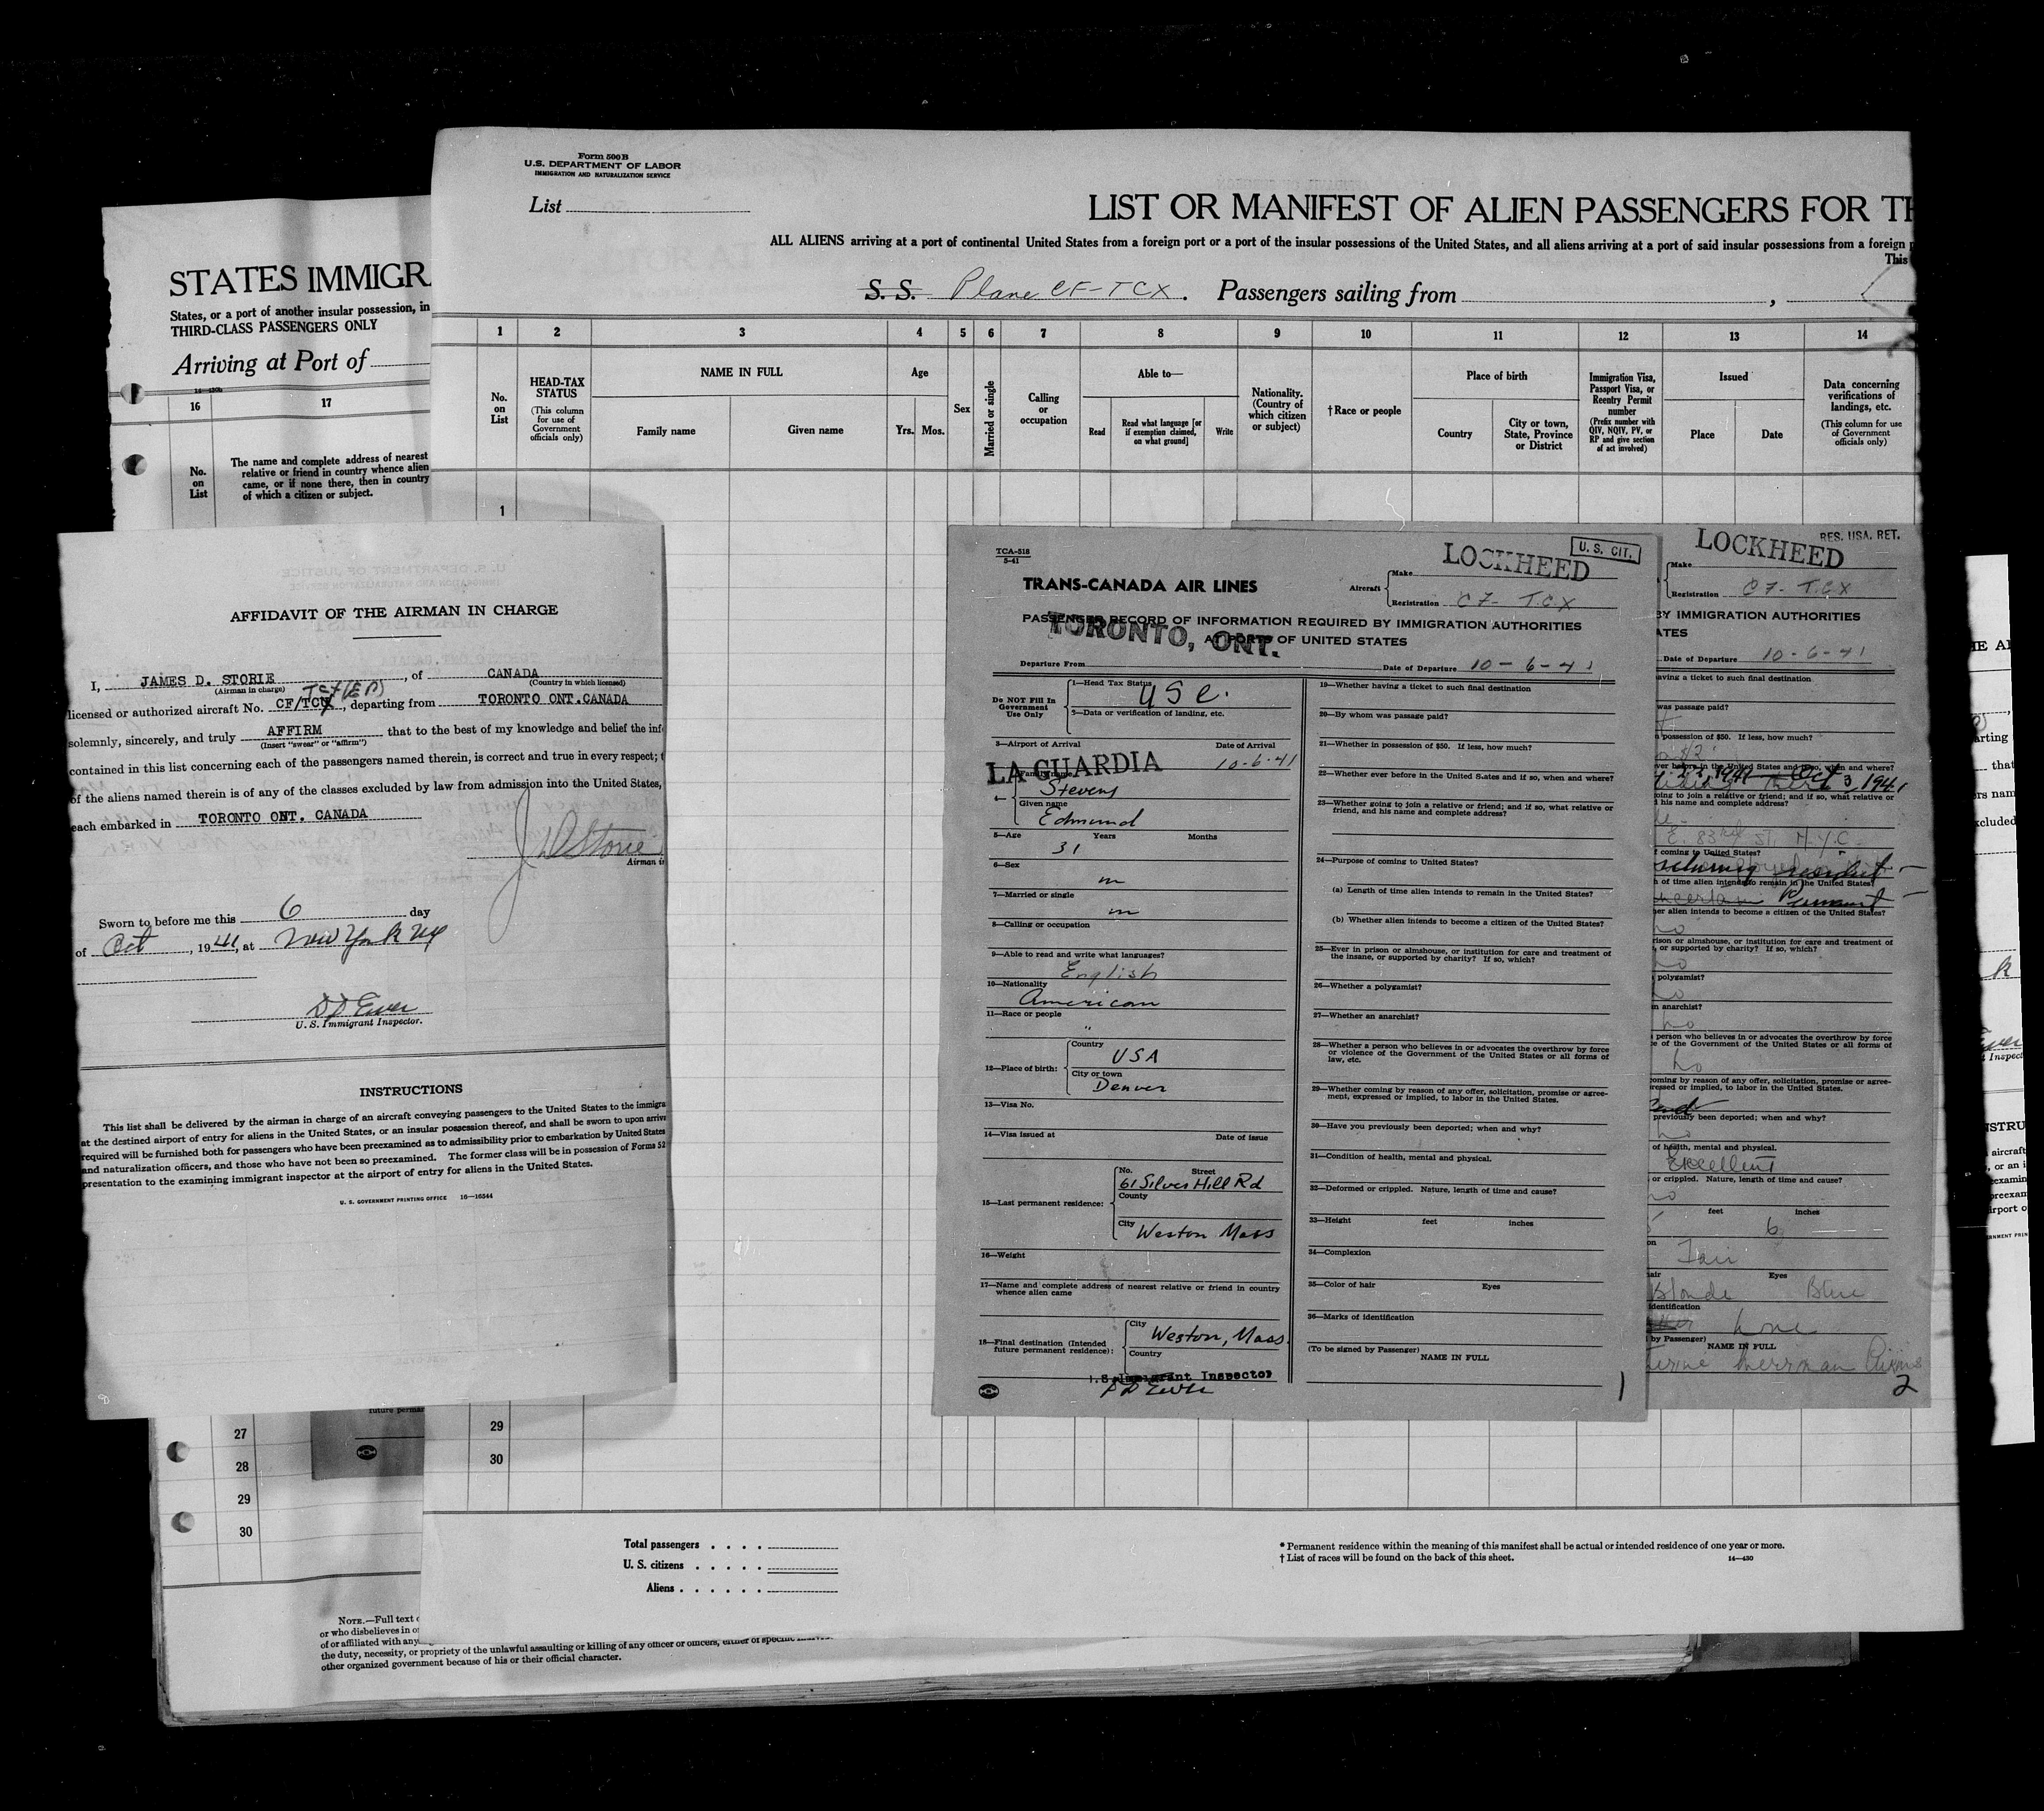 Form 500 B
U.S. DEPARTMENT OF LABOR
IMMIGRATION AND NATURALIZATION SERVICE
List
LIST OR MANIFEST OF ALIEN PASSENGERS FOR TH
ALL ALIENS arriving at a port of continental United States from a foreign port or a port of the insular possessions of the United States, and all aliens arriving at a port of said insular possessions from a foreign
This
S. S. Plane CF-TCX. Passengers sailing from ,
1 2 3 4 5 6 7 8 9 10 11 12 13 14
No. on List
HEAD-TAX STATUS
(This column for use of Government officials only)
NAME IN FULL
Family name Given name
Age
Yrs. Mos.
Sex
Married or single
Calling or occupation
Able to—
Read
Read what language [or if exemption claimed, on what ground]
Write
Nationality. (Country of which citizen or subject)
†Race or people
Place of birth
Country
City or town, State, Province or District
Immigration Visa, Passport Visa, or Reentry Permit number
(Prefix number with QIV, NQIV, PV, or RP and give section of act involved)
Issued
Place Date
Data concerning verifications of landings, etc.
(This column for use of Government officials only)
1
29
30
Total passengers . . . .
U. S. citizens . . . . .
Aliens . . . . . .
* Permanent residence within the meaning of this manifest shall be actual or intended residence of one year or more.
† List of races will be found on the back of this sheet.
14—430
STATES IMMIGRA
States, or a port of another insular possession, in
THIRD-CLASS PASSENGERS ONLY
Arriving at Port of
16 17
No. on List
The name and complete address of nearest
relative or friend in country whence alien
came, or if none there, then in country
of which a citizen or subject.
27
28
29
30
future perman
NOTE.—Full text
or who disbelieves in o
of or affiliated with any
the duty, necessity, or propriety of the unlawful assaulting or killing of any officer or officers, either of specific
other organized government because of his or their official character.
AFFIDAVIT OF THE AIRMAN IN CHARGE
I, JAMES D. STORIE, of CANADA
(Airman in charge) (Country in which licensed)
licensed or authorized aircraft No. CF/TCX, departing from TORONTO ONT.CANADA
solemnly, sincerely, and truly AFFIRM that to the best of my knowledge and belief the inf
(Insert "swear" or "affirm")
contained in this list concerning each of the passengers named therein, is correct and true in every respect;
of the aliens named therein is of any of the classes excluded by law from admission into the United States,
each embarked in TORONTO ONT. CANADA
J D Storie
Airman i
Sworn to before me this 6 day
of Oct, 1941, at New York NY
D D Ewer
U. S. Immigrant Inspector.
INSTRUCTIONS
This list shall be delivered by the airman in charge of an aircraft conveying passengers to the United States to the immigra
at the destined airport of entry for aliens in the United States, or an insular possession thereof, and shall be sworn to upon arriva
required will be furnished both for passengers who have been preexamined as to admissibility prior to embarkation by United States
and naturalization officers, and those who have not been so preexamined. The former class will be in possession of Forms 52
presentation to the examining immigrant inspector at the airport of entry for aliens in the United States.
U. S. GOVERNMENT PRINTING OFFICE 16—16544
TCA-518
5-41
TRANS-CANADA AIR LINES
Aircraft
Make LOCKHEED
U. S. CIT.
Registration CF- TCX
PASSENGER RECORD OF INFORMATION REQUIRED BY IMMIGRATION AUTHORITIES
AT PORT OF UNITED STATES
TORONTO, ONT.
Departure From Date of Departure 10-6-41
Do NOT Fill In Government Use Only
1—Head Tax Status USC.
2—Data or verification of landing, etc.
3—Airport of Arrival Date of Arrival
LA GUARDIA 10-6-41
4—
Family name
Stevens
Given name
Edmund
5—Age Years Months
31
6—Sex
m
7—Married or single
m
8—Calling or occupation
9—Able to read and write what languages?
English
10—Nationality
American
11—Race or people
"
12—Place of birth:
Country
USA
City or town
Denver
13—Visa No.
14—Visa issued at Date of issue
15—Last permanent residence:
No. Street
61 Silver Hill Rd
County
City Weston Mass
16—Weight
17—Name and complete address of nearest relative or friend in country
whence alien came
18—Final destination (Intended future permanent residence):
City
Weston, Mass.
Country
.S. Immigrant Inspector
D D Ewer
19—Whether having a ticket to such final destination
20—By whom was passage paid?
21—Whether in possession of $50. If less, how much?
22—Whether ever before in the United States and if so, when and where?
23—Whether going to join a relative or friend; and if so, what relative or
friend, and his name and complete address?
24—Purpose of coming to United States?
(a) Length of time alien intends to remain in the United States?
(b) Whether alien intends to become a citizen of the United States?
25—Ever in prison or almshouse, or institution for care and treatment of
the insane, or supported by charity? If so, which?
26—Whether a polygamist?
27—Whether an anarchist?
28—Whether a person who believes in or advocates the overthrow by force
or violence of the Government of the United States or all forms of
law, etc.
29—Whether coming by reason of any offer, solicitation, promise or agree-
ment, expressed or implied, to labor in the United States.
30—Have you previously been deported; when and why?
31—Condition of health, mental and physical.
32—Deformed or crippled. Nature, length of time and cause?
33—Height feet inches
34—Complexion
35—Color of hair Eyes
36—Marks of identification
(To be signed by Passenger)
NAME IN FULL
1
RES. USA. RET.
LOCKHEED
Make
Registration CF- TCX
BY IMMIGRATION AUTHORITIES
ATES
Date of Departure 10-6-41
having a ticket to such final destination
was passage paid?
n possession of $50. If less, how much?
ever before in the United States and if so, when and where?
1941 Oct 3, 1941
oing to join a relative or friend; and if so, what relative or
d his name and complete address?
E. 83rd St. N.Y.C.
f coming to United States?
returning resident
h of time alien intends to remain in the United States?
uncertain Permanent
her alien intends to become a citizen of the United States?
no
rison or almshouse, or institution for care and treatment of
, or supported by charity? If so, which?
no
polygamist?
no
n anarchist?
no
person who believes in or advocates the overthrow by force
e of the Government of the United States or all forms of
no
coming by reason of any offer, solicitation, promise or agree-
ressed or implied, to labor in the United States.
previously been deported; when and why?
no
of health, mental and physical.
Excellent
or crippled. Nature, length of time and cause?
no
feet inches
5 6
on
Fair
hair Eyes
Blonde Blue
identification
none
by Passenger)
NAME IN FULL
2
HE AI
arting
that
rs nam
xcluded
k
Inspect
NSTRU
aircraft
, or an i
examin
preexam
irport o
RNMENT PRIN